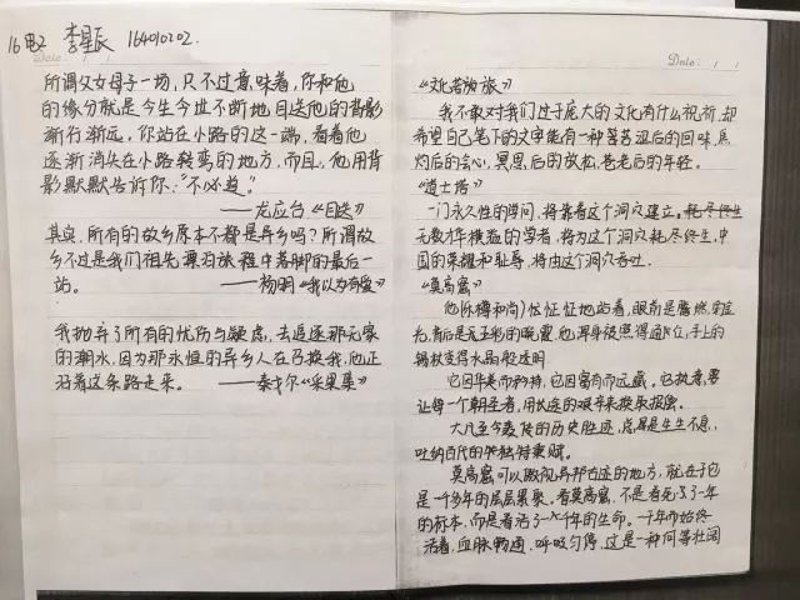 16电2 李星辰 164010202.
Date: / /
所谓父女母子一场，只不过意味着，你和他
的缘分就是今生今世不断地目送他的背影
渐行渐远，你站在小路的这一端，看着他
逐渐消失在小路转弯的地方，而且，他用背
影默默告诉你："不必追"。
——龙应台《目送》
其实，所有的故乡原本不都是异乡吗？所谓故
乡不过是我们祖先漂泊旅程中落脚的最后一
站。 ——杨明《我以为有爱》
我抛弃了所有的忧伤与疑虑，去追逐那无家
的潮水，因为那永恒的异乡人在召唤我，他正
沿着这条路走来。 ——泰戈尔《采果集》
Date: / /
《文化苦旅》
我不敢对我们过于庞大的文化有什么祝祈，却
希望自己笔下的文字能有一种苦涩后的回味，焦
灼后的会心，冥思后的放松，苍老后的年轻。
《道士塔》
一门永久性的学问，将靠着这个洞穴建立。耗尽终生
无数才华横溢的学者，将为这个洞穴耗尽终生，中
国的荣耀和耻辱，将由这个洞穴吞吐.
《莫高窟》
他(乐樽和尚)怔怔地站着，眼前是腾燃
光，背后是五彩的晚霞，他浑身被照得通红，手上的
锡杖变得水晶般透明.
它因华美而矜持，它因富有而远藏。它执意要
让每一个朝圣者，用长途的艰辛来换取报偿。
大凡至今轰传的历史胜迹，总是生生不息、
吐纳百代的独特秉赋。
莫高窟可以傲视异邦古迹的地方，就在于它
是一千多年的层层累聚。看莫高窟，不是看死了一千年
的标本，而是看活了一千年的生命。一千年而始终
活着，血脉畅通、呼吸匀停，这是一种何等壮阔